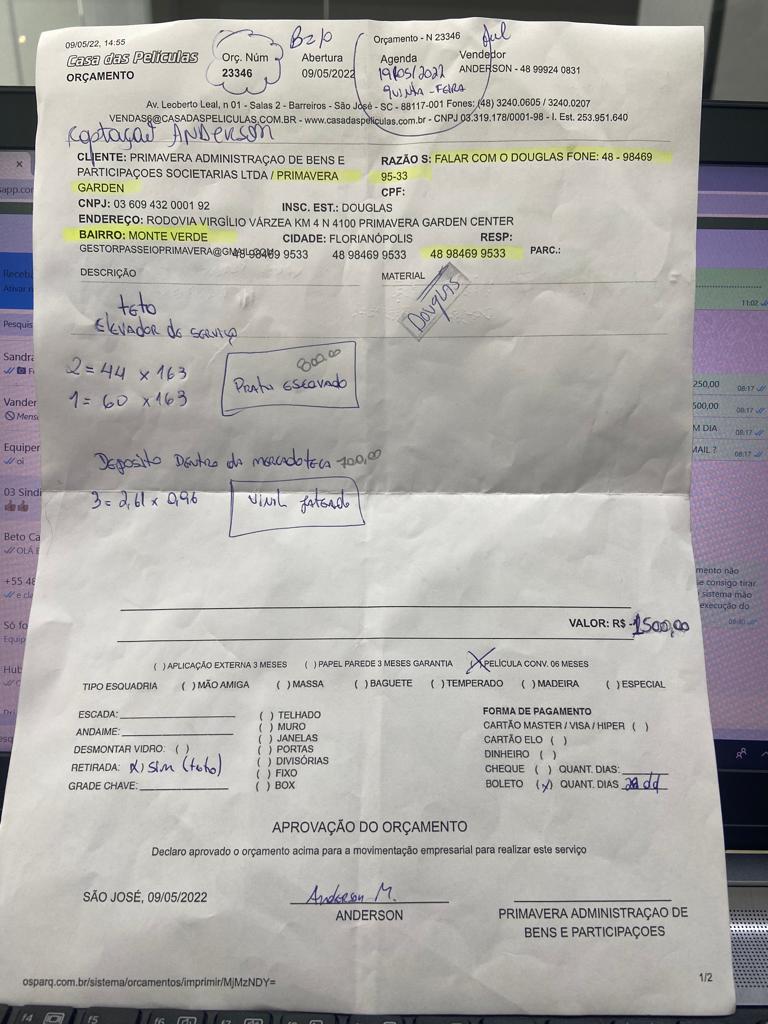 09/05/22, 14:55
Casa das Películas
ORÇAMENTO
Orç. Núm
23346
B2P
Abertura
09/05/2022
Orçamento - N 23346
Agenda
19/05/2022
QUINTA-FEIRA
Vendedor
ANDERSON - 48 99924 0831
Av. Leoberto Leal, n 01 - Salas 2 - Barreiros - São José - SC - 88117-001 Fones: (48) 3240.0605 / 3240.0207
VENDAS6@CASADASPELICULAS.COM.BR - www.casadaspeliculas.com.br - CNPJ 03.319.178/0001-98 - I. Est. 253.951.640
Captação ANDERSON
CLIENTE: PRIMAVERA ADMINISTRAÇAO DE BENS E
PARTICIPAÇOES SOCIETARIAS LTDA / PRIMAVERA
GARDEN
RAZÃO S: FALAR COM O DOUGLAS FONE: 48 - 98469
95-33
CPF:
CNPJ: 03 609 432 0001 92 INSC. EST.: DOUGLAS
ENDEREÇO: RODOVIA VIRGÍLIO VÁRZEA KM 4 N 4100 PRIMAVERA GARDEN CENTER
BAIRRO: MONTE VERDE CIDADE: FLORIANÓPOLIS RESP:
GESTORPASSEIOPRIMAVERA@GMAIL.COM 48 98469 9533 48 98469 9533 48 98469 9533 PARC.:
DESCRIÇÃO MATERIAL
Douglas
teto
ELEVADOR DE SERVIÇO
2 = 44 x 163
1 = 60 x 163
800,00
PRATA ESPELHADO
DEPOSITO DENTRO DA MERCADOTECA 700,00
3 = 2,61 x 0,96
VINIL JATEADO
VALOR: R$ 1500,00
( ) APLICAÇÃO EXTERNA 3 MESES ( ) PAPEL PAREDE 3 MESES GARANTIA (X) PELÍCULA CONV. 06 MESES
TIPO ESQUADRIA ( ) MÃO AMIGA ( ) MASSA ( ) BAGUETE ( ) TEMPERADO ( ) MADEIRA ( ) ESPECIAL
ESCADA:
ANDAIME:
DESMONTAR VIDRO: ( )
RETIRADA: (X) sim (teto)
GRADE CHAVE:
( ) TELHADO
( ) MURO
( ) JANELAS
( ) PORTAS
( ) DIVISÓRIAS
( ) FIXO
( ) BOX
FORMA DE PAGAMENTO
CARTÃO MASTER / VISA / HIPER ( )
CARTÃO ELO ( )
DINHEIRO ( )
CHEQUE ( ) QUANT. DIAS:
BOLETO (X) QUANT. DIAS 28 dd
APROVAÇÃO DO ORÇAMENTO
Declaro aprovado o orçamento acima para a movimentação empresarial para realizar este serviço
SÃO JOSÉ, 09/05/2022
Anderson M.
ANDERSON
PRIMAVERA ADMINISTRAÇAO DE
BENS E PARTICIPAÇOES
osparq.com.br/sistema/orcamentos/imprimir/MjMzNDY=
1/2
sapp.com
Receba
Ativar
Pesquis
Sandra
Vander
Mens
Equiper
oi
03 Sindi
Beto Ca
OLÁ
+55 48
Só fo
Equip
Hub
11:02
250,00 08:17
500,00 08:17
M DIA 08:17
MAIL ? 08:17
mento não
e consigo tirar
sistema mão
execução do
f4
f5
f6